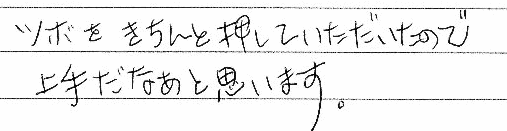 ツボをきちんと押していただいたので
上手だなあと思います。